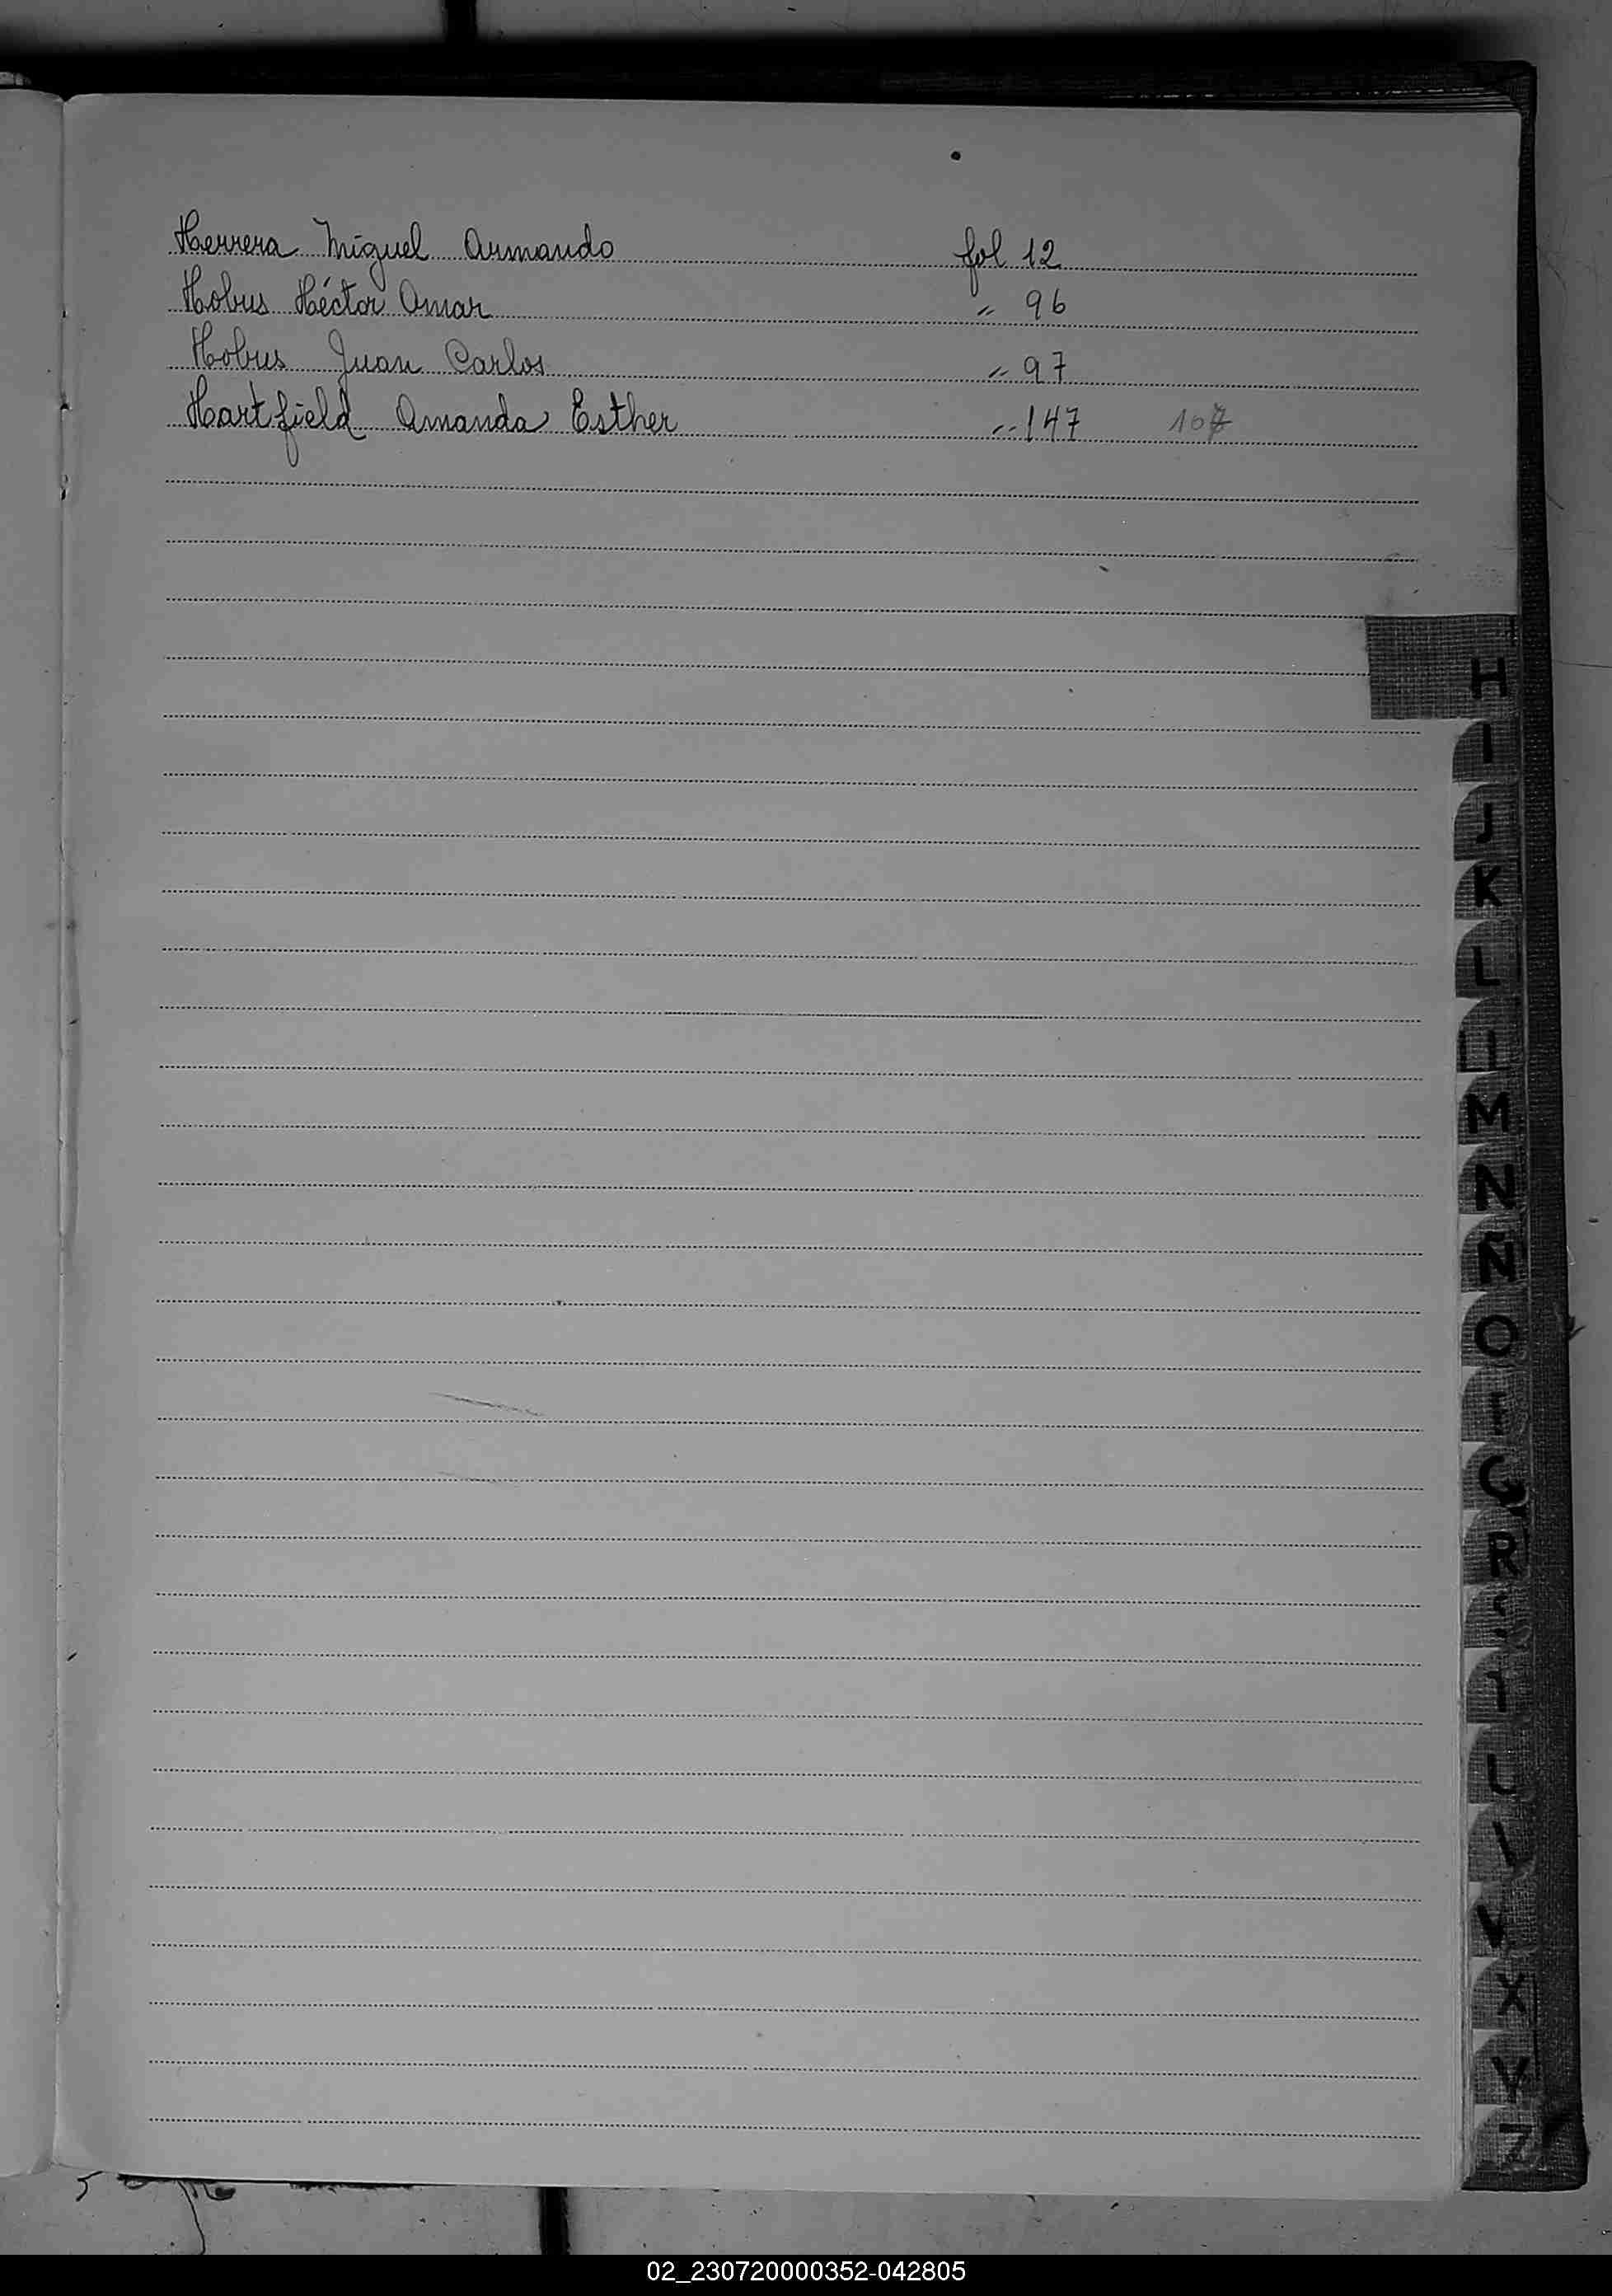 Herrera Miguel Armando fol 12
Hobus Héctor Omar " 96
Hobus Juan Carlos " 97
Hartfield Amanda Esther " 147
H
I
J
K
L
M
N
Ñ
O
R
X
Y
Z
02_230720000352-042805